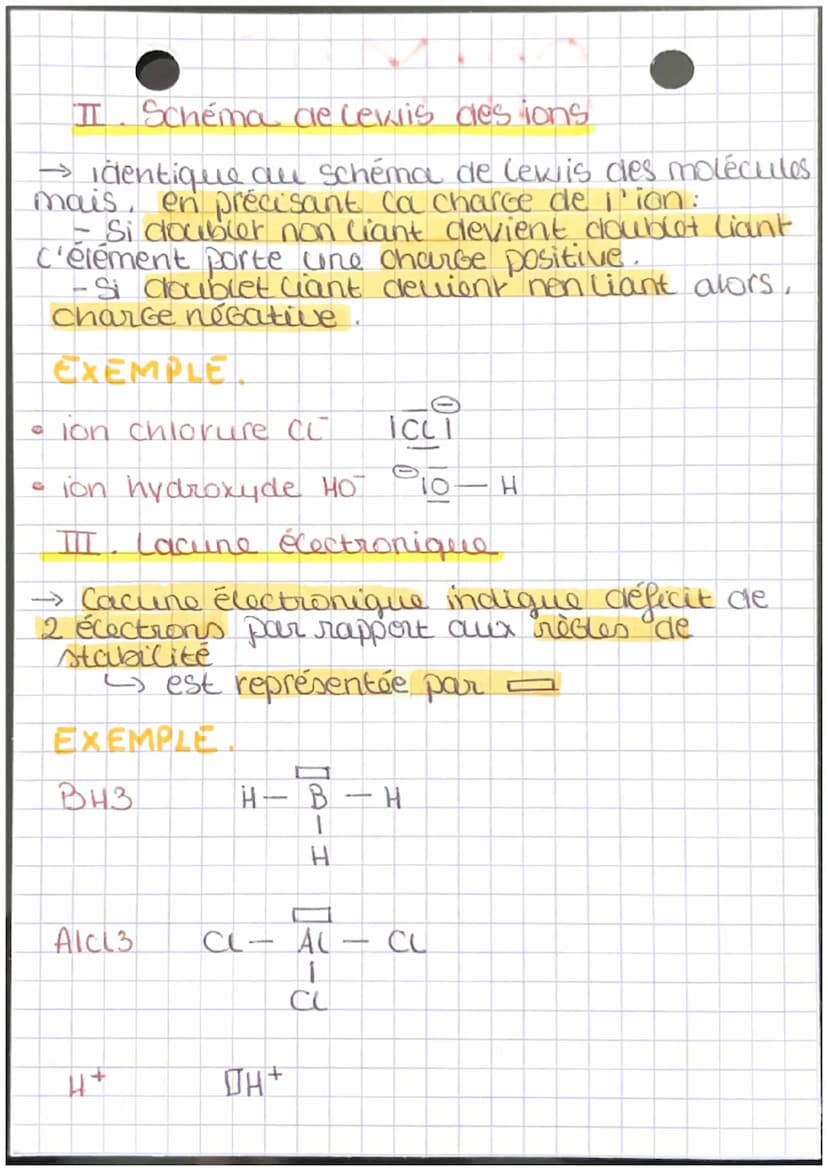 II. Schéma de Lewis des ions
→ identique au schéma de Lewis des molécules
mais, en précisant la charge de l'ion:
- Si doublet non liant devient doublet liant
l'élément porte une charge positive.
- Si doublet liant devient non liant alors,
charge négative.
EXEMPLE.
• ion chlorure Cl⁻ |Cl| ⊖
• ion hydroxyde HO⁻ ⊖ |O — H
III. Lacune électronique
→ Lacune électronique indique déficit de
2 électrons par rapport aux règles de
stabilité
↳ est représentée par ▭
EXEMPLE.
▭
BH3 H — B — H
|
H
▭
AlCl3 Cl — Al — Cl
|
Cl
H⁺ ▯H⁺